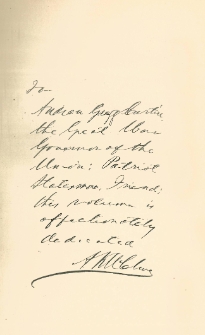 To
Andrew Gregg Curtin
the Great War
Governor of the
Union: Patriot
Statesman, Friend;
this volume is
affectionately
dedicated
A K McClure